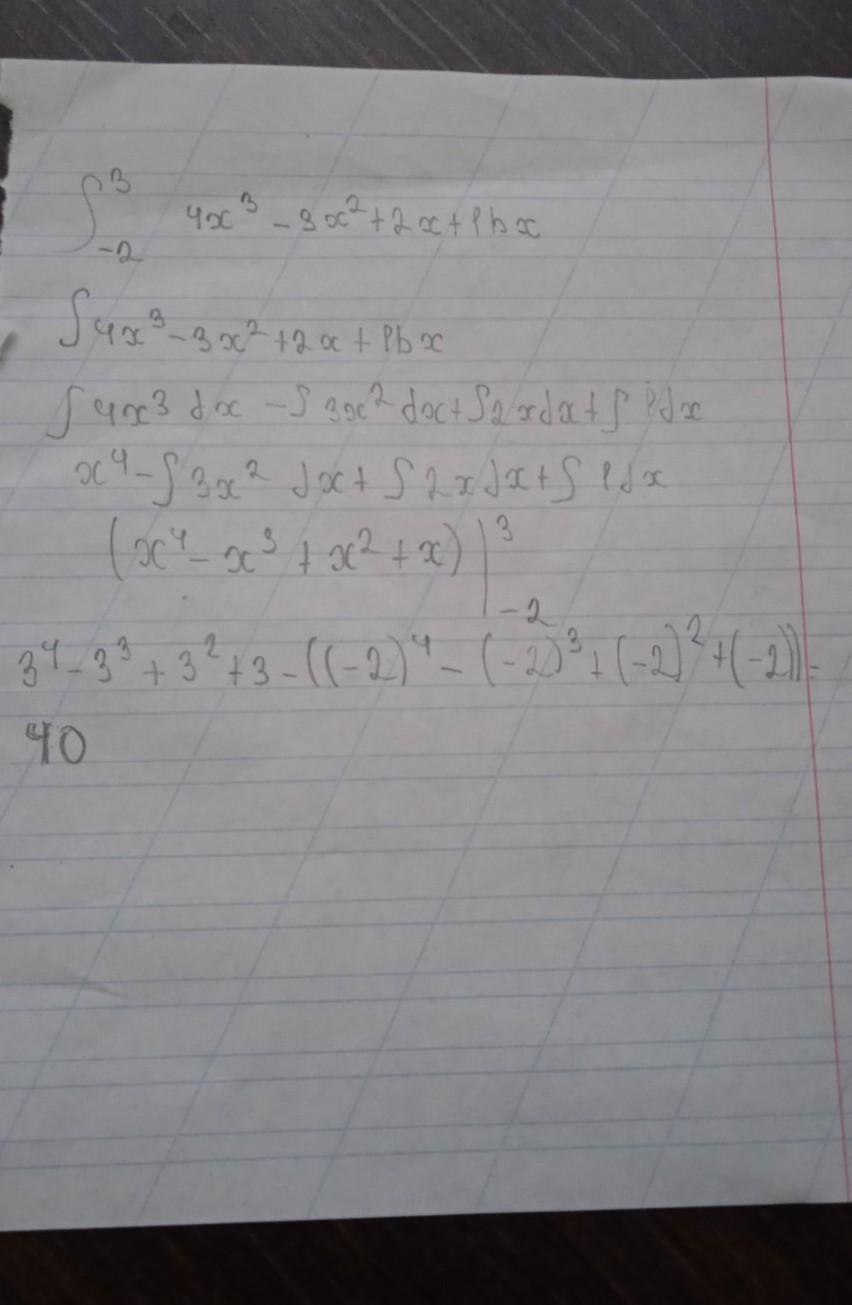 ∫₋₂³ 4x³ - 3x² + 2x + 1dx
∫4x³ - 3x² + 2x + 1dx
∫4x³dx - ∫3x²dx + ∫2xdx + ∫1dx
x⁴ - ∫3x²dx + ∫2xdx + ∫1dx
(x⁴ - x³ + x² + x)|₋₂³
3⁴ - 3³ + 3² + 3 - ((-2)⁴ - (-2)³ + (-2)² + (-2)) =
40